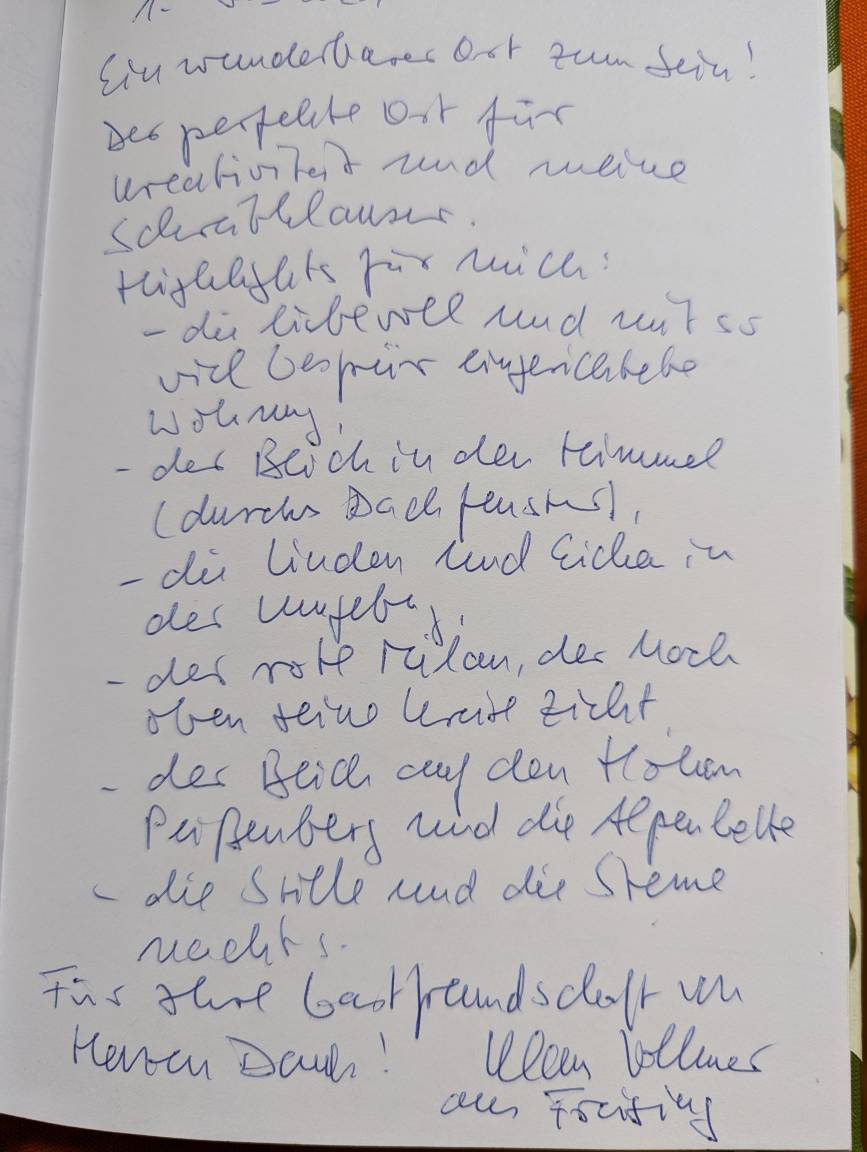 Ein wunderbarer Ort zum Sein!
Der perfekte Ort für
Kreativität und meine
Schreibklausur.
Highlights für mich:
- die liebevoll und mit so
viel Gespür eingerichtete
Wohnung,
- der Blick in den Himmel
(durchs Dachfenster),
- die Linden und Eichen in
der Umgebung,
- der rote Milan, der hoch
oben seine Kreise zieht,
- der Blick auf den Hohen
Peißenberg und die Alpenkette
- die Stille und die Sterne
nachts.
Für Ihre Gastfreundschaft von
Herzen Dank! Klaus Vollmer
aus Freising